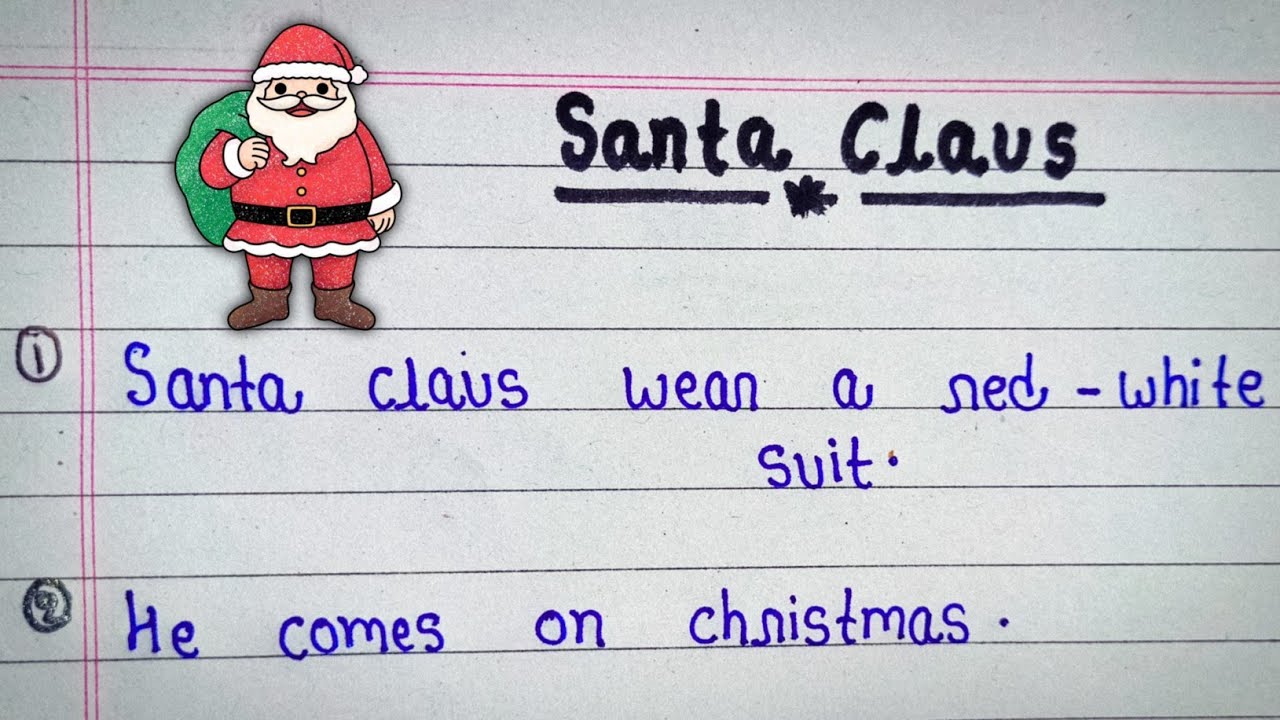 Santa Claus
① Santa claus wear a red-white
suit.
② He comes on christmas.